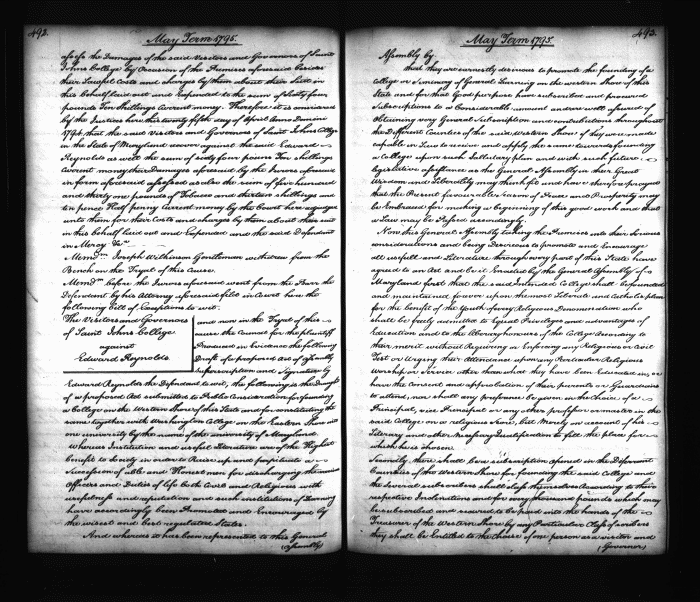 492.
May Term 1795.
assess the Damages of the said Visitors and Governors of Saint
Johns College by Occasion of the Premises aforesaid besides
their Lawful Costs and Charges by them about their Suit in
this behalf laid out and Expended to the sum of Sixty four
pounds Ten Shillings Current money. Therefore it is considered
by the Justices here this twenty fifth day of April Anno Domini
that the said Visitors and Governors of Saint Johns College
in the State of Maryland recover against the said Edward
Reynolds as well the sum of sixty four pounds Ten Shillings
Current money their Damages aforesaid by the Jurors aforesaid
in form aforesaid assessed as also the sum of five hundred
and thirty one pounds of Tobacco and thirteen shillings and
ten pence Half penny Current money by the Court here adjudged
unto them for their Costs and charges by them about their suit
in this behalf laid out and Expended and the said Defendant
in Mercy &c
Memdm Joseph Wilkinson Gentleman withdrew from the
Bench on the Tryal of this Cause.
Memdm before the Jurors aforesaid went from the Barr the
Defendant by his Attorney aforesaid filed in Court here the
following bill of Exceptions to wit.
The Visitors and Governors
of Saint Johns College
against
Edward Reynolds
and now in the Tryal of this
cause the Counsel for the plaintiff
Produced in Evidence the following
Draft of a proposed act of assembly
subscription and Signature by
Edward Reynolds the Defendant to wit, the following is the Draught
of a proposed Act submitted to Public Consideration for founding
a College on the Western Shore of this State and for constituting the
same together with Washington College on the Eastern Shore into
one university by the name of the university of Maryland
whereas Institution and useful Literature are of the Highest
benefit to Society in order to Raise up and perpetuate a
Succession of able and Honest men for discharging the various
Offices and Duties of life both Civil and Religious with
usefulness and reputation and such institutions of Learning
have accordingly been Promoted and Encouraged by
the wisest and best regulated States.
And whereas it has been represented to this General
(Assembly)
493.
May Term 1795.
Assembly by
that they are earnestly desirous to promote the founding of a
College or Seminary of General Learning on the western Shore of this
State and for that Good purpose have subscribed and procured
Subscriptions to a Considerable amount and are well assured of
Obtaining very General Subscription and contributions throughout
the Different Counties of the said Western Shore if they were made
capable in Law to receive and apply the same towards founding
a College upon such Sallutary plan and with such future
Legislative assistance as the General Assembly in their Great
Wisdom and Liberality may think fit and have therefore prayed
that the Present favourable season of Peace and Prosperity may
be Embraced for making a beginning of this good work and that
a Law may be Passed accordingly.
Now this General Assembly taking the Premises into their Serious
considerations and being Desirous to promote and Encourage
all usefull and Literature through every part of this State have
agreed to an Act and be it Enacted by the General Assembly of
Maryland first that the said Intended College shall be founded
and maintained forever upon the most Liberal and Catholic plan
for the benefit of the Youth of every Religious Denomination who
shall be freely admitted to Equal Priviledges and advantages of
Education and to the Literary honours of the College according to
their merit without Requiring or Enforcing any Religious or Civil
Test or Urging their Attendance upon any Particular Religious
Worship or Service other than what they have been Educated in, or
have the Consent and approbation of their parents or Guardians
to attend, nor shall any preference be given in the choice of a
Principal, vice Principal or any other professor or master in the
said College on a religious Score, but Merely on account of his
Literary and other Necessary Qualifications to fill the place for
which he is chosen.
Secondly, there shall be a subscription opened in the Different
Counties of the Western Shore for founding the said College and
the several subscribers shall class themselves According to their
respective Inclinations and for every thousand pounds which may
be subscribed and secured to be paid into the hands of the
Treasurer of the Western Shore by any Particular Class of scribers
they shall be Entitled to the Choice of one person as a visitor and
(Governor)